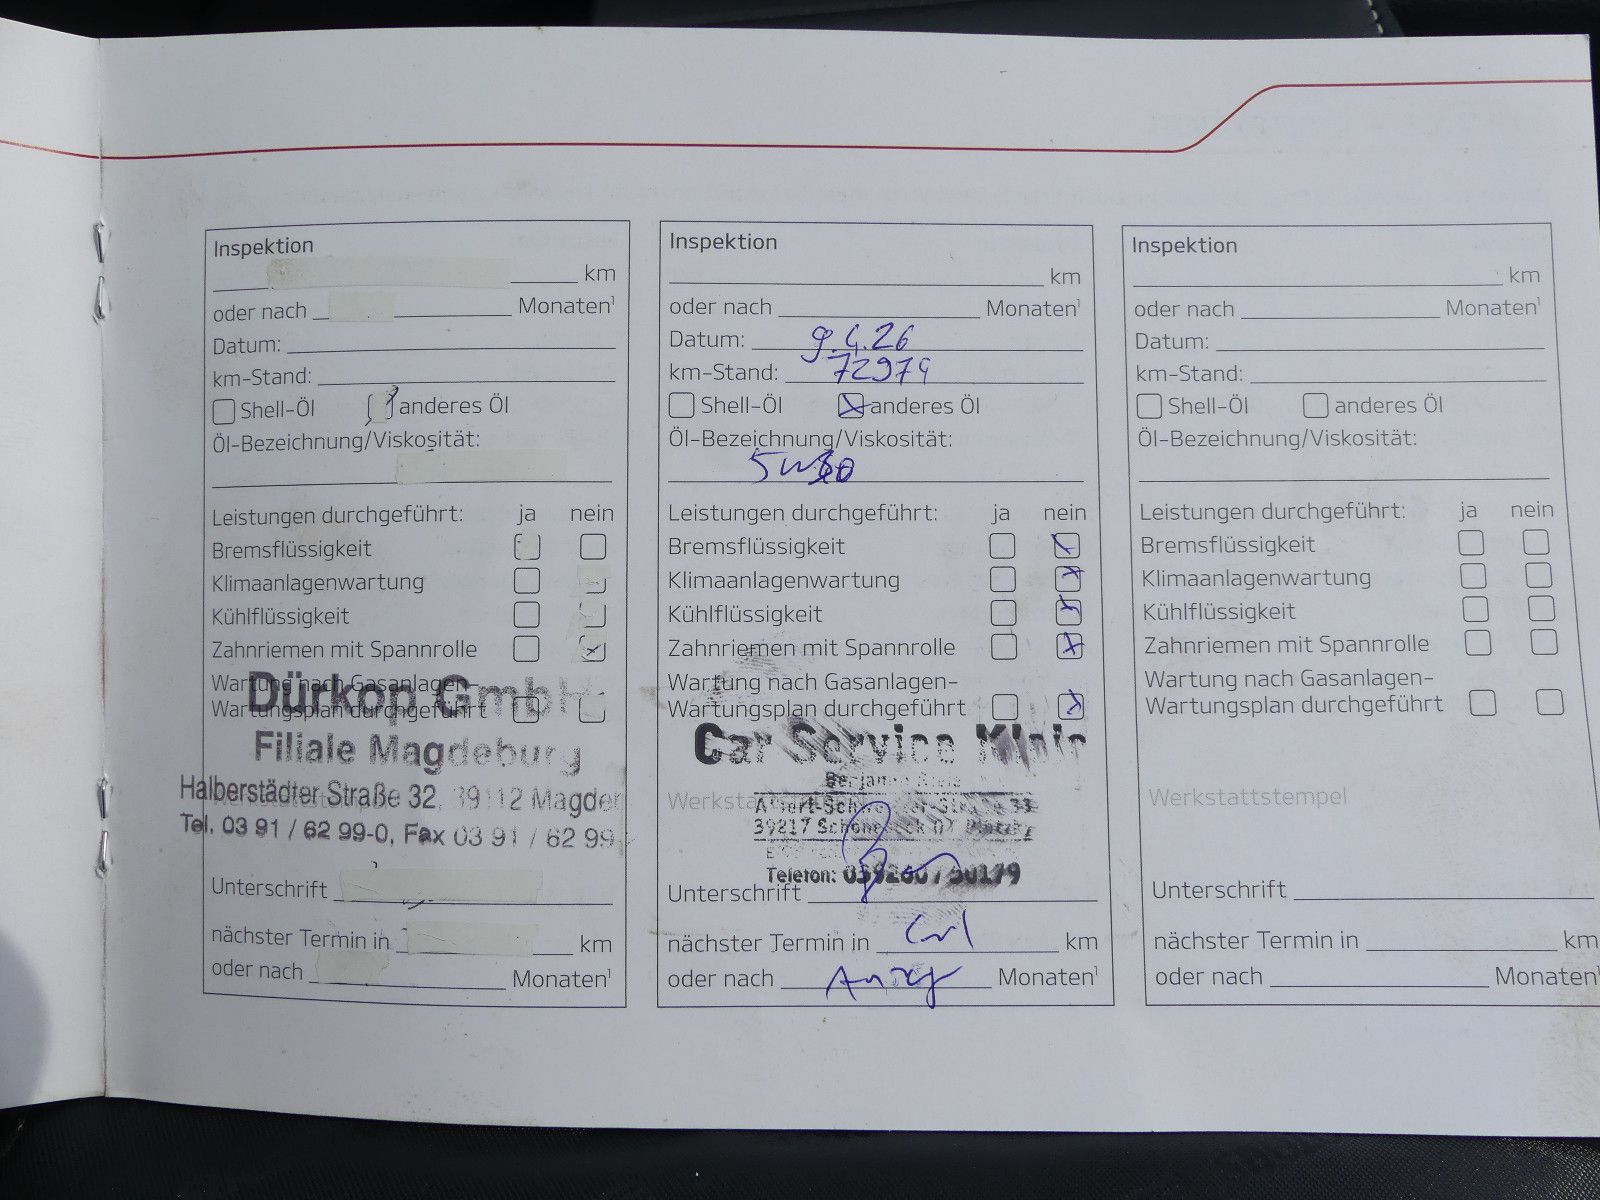 Inspektion
km
oder nach Monaten¹
Datum:
km-Stand:
Shell-Öl anderes Öl
Öl-Bezeichnung/Viskosität:
Leistungen durchgeführt: ja nein
Bremsflüssigkeit
Klimaanlagenwartung
Kühlflüssigkeit
Zahnriemen mit Spannrolle
Wartung nach Gasanlagen-
Wartungsplan durchgeführt
Dürkop GmbH
Filiale Magdeburg
Halberstädter Straße 32, 39112 Magde
Tel. 03 91 / 62 99-0, Fax 03 91 / 62 99
Unterschrift
nächster Termin in km
oder nach Monaten¹
Inspektion
km
oder nach Monaten¹
Datum: 9.4.26
km-Stand: 72974
Shell-Öl anderes Öl
Öl-Bezeichnung/Viskosität:
Leistungen durchgeführt: ja nein
Bremsflüssigkeit
Klimaanlagenwartung
Kühlflüssigkeit
Zahnriemen mit Spannrolle
Wartung nach Gasanlagen-
Wartungsplan durchgeführt
Car Service
39217
Telefon:
Unterschrift
nächster Termin in km
oder nach Monaten¹
Inspektion
km
oder nach Monaten¹
Datum:
km-Stand:
Shell-Öl anderes Öl
Öl-Bezeichnung/Viskosität:
Leistungen durchgeführt: ja nein
Bremsflüssigkeit
Klimaanlagenwartung
Kühlflüssigkeit
Zahnriemen mit Spannrolle
Wartung nach Gasanlagen-
Wartungsplan durchgeführt
Werkstattstempel
Unterschrift
nächster Termin in km
oder nach Monaten¹